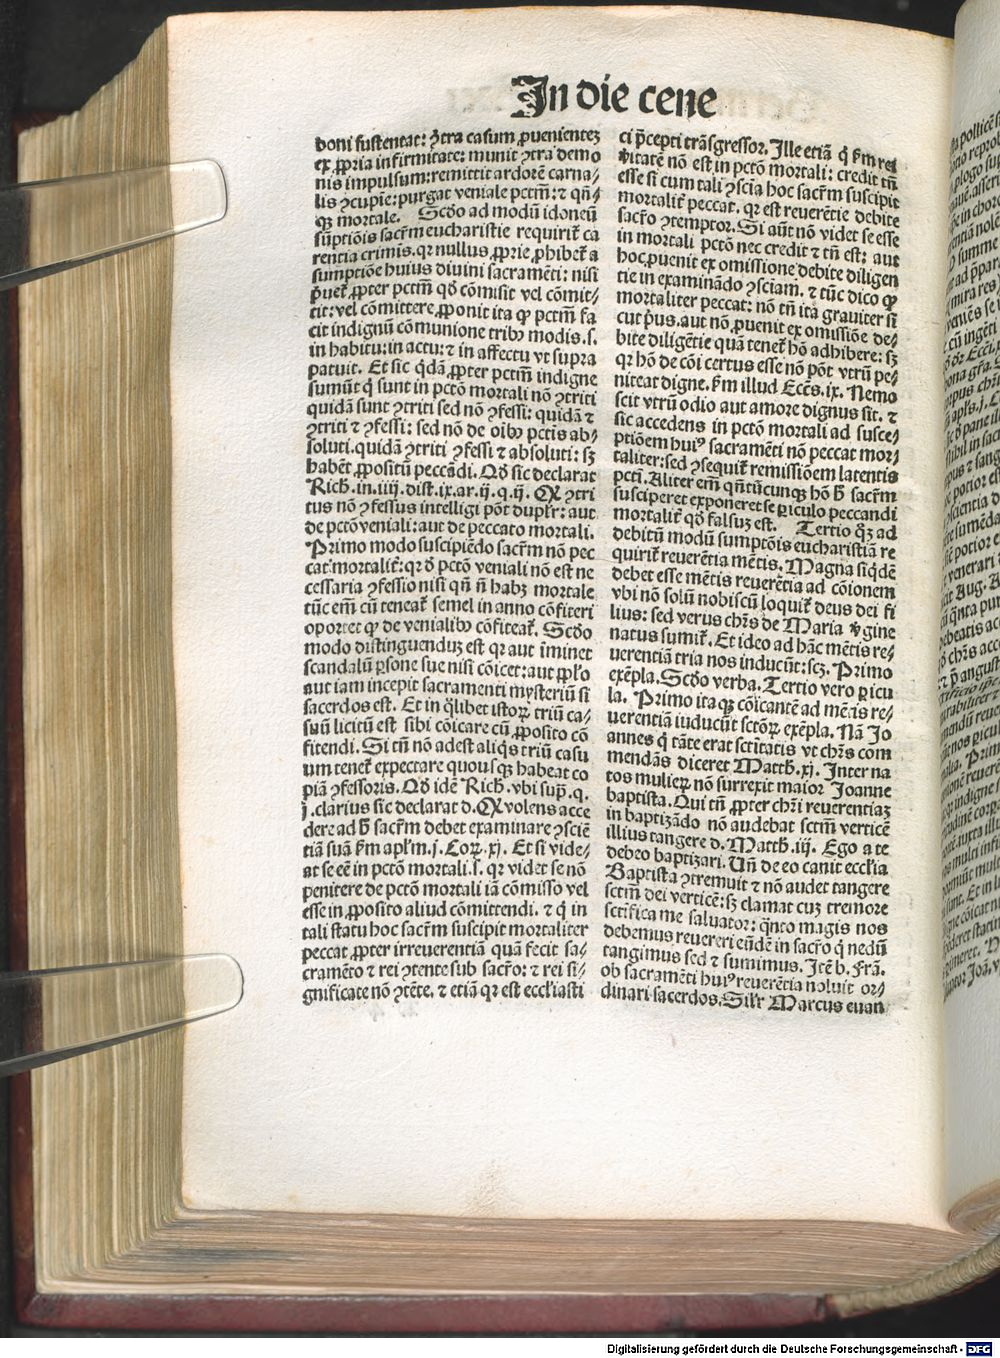 In die cene
boni sustentat: ꝯtra casum ꝓuenientez
ex ꝓpria infirmitate: munit ꝯtra demo
nis impulsum: remittit ardorē carna⸗
lis ꝯcupie: purgat veniale pctm̄: ⁊ qn̄⸗
qꝫ mortale. Scḋo ad modū idoneū
sūptiōis sacr̄m eucharistie requirit᷑ ca
rentia crimis. qꝛ nullus ꝓprie ꝓhibet᷑ a
sumptiōe huius diuini sacramēti: nisi
p̄uet᷑ ꝓpter pctm̄ qḋ cōmisit vel cōmit⸗
tit: vel cōmittere ꝓponit ita ꝙ pctm̄ fa
cit indignū cōmunione tribꝰ modis. s.
in habitu: in actu: ⁊ in affectu vt supra
patuit. Et sic qdā ꝓpter pctm̄ indigne
sumūt q̇ sunt in pctō mortali nō ꝯtriti
quidā sunt ꝯtriti sed nō ꝯfessi: quidā ⁊
ꝯtriti ⁊ ꝯfessi: sed nō de oibꝰ pctis ab⸗
soluti. quidā ꝯtriti ꝯfessi ⁊ absoluti: sꝫ
habēt ꝓpositū peccādi. Qḋ sic declarat
Rich. in. iiij. dist. ix. ar. ij. q. ij. Qꝫ ꝯtri
tus nō ꝯfessus intelligi pōt duplr̄: aut
de pctō veniali: aut de peccato mortali.
Primo modo suscipiēdo sacr̄m nō pec
cat mortalit᷑: qꝛ ḋ pctō veniali nō est ne
cessaria ꝯfessio nisi qn̄ n̄ habꝫ mortale
tūc em̄ cū teneat᷑ semel in anno cōfiteri
oportet ꝙ de venialibꝰ cōfiteat᷑. Scḋo
modo distinguenduꝫ est qꝛ aut iminet
scandalū ꝑsone sue nisi cōicet: aut ꝓpl̄o
aut iam incepit sacramenti mysteriū si
sacerdos est. Et in q̇libet istoꝝ triū ca⸗
suū licitū est sibi cōicare cū ꝓposito cō
fitendi. Si tn̄ nō adest aliq̇s triū casu
um tenet᷑ expectare quousqꝫ habeat co
piā ꝯfessoris. Qḋ idē Rich. vbi sup̄. q.
j. clarius sic declarat d. Qꝫ volens acce
dere ad h̄ sacr̄m debet examinare ꝯsciē
tiā suā ẜm apl̄m. j. Coꝝ. xj. Et si vide⸗
at se eē in pctō mortali. s. qꝛ videt se nō
penitere de pctō mortali iā cōmisso vel
esse in ꝓposito aliud cōmittendi. ⁊ q̇ in
tali statu hoc sacr̄m suscipit mortaliter
peccat ꝓpter irreuerentiā quā fecit sa⸗
cramēto ⁊ rei ꝯtente sub sacr̄o: ⁊ rei si⸗
gnificate nō ꝯtēte. ⁊ etiā qꝛ est eccl̄iasti
ci p̄cepti trāsgressor. Ille etiā q̇ ẜm rei
v̄itatē nō est in pctō mortali: credit tn̄
esse si cum tali ꝯscia hoc sacr̄m suscipit
mortalit᷑ peccat. qꝛ est reuerētie debite
sacr̄o ꝯtemptor. Si aūt nō videt se esse
in mortali pctō nec credit ⁊ tn̄ est: aut
hoc ꝓuenit ex omissione debite diligen
tie in examinādo ꝯsciam. ⁊ tūc dico ꝙ
mortaliter peccat: nō tn̄ ita grauiter si
cut p̄us. aut nō ꝓuenit ex omissiōe de⸗
bite diligētie quā tenet᷑ hō adhibere: sꝫ
qꝛ hō de cōi certus esse nō pōt vtrū pe⸗
niteat digne. ẜm illud Eccs̄. ix. Nemo
scit vtrū odio aut amore dignus sit. ⁊
sic accedens in pctō mortali ad susce⸗
ptiōem huiꝰ sacramēti nō peccat mor⸗
taliter: sed ꝯsequit᷑ remissiōem latentis
pcti. Aliter em̄ qn̄tūcunqꝫ hō h̄ sacr̄m
susciperet exponeret se ꝑiculo peccandi
mortalit᷑ qḋ falsuꝫ est. Tertio q̇ꝫ ad
debitū modū sumptōis eucharistiā re
quirit᷑ reuerētia mētis. Magna siq̇dē
debet esse mētis reuerētia ad cōionem
vbi nō solū nobiscū loquit᷑ deus dei fi
lius: sed verus chr̄s de Maria v̄gine
natus sumit᷑. Et ideo ad hāc mētis re⸗
uerentiā tria nos inducūt: scꝫ. Primo
exēpla. Scḋo verba. Tertio vero ꝑicu
la. Primo itaqꝫ cōicantē ad mētis re⸗
uerentiā iuducūt sctōꝝ exēpla. Nā Jo
annes q̇ tāte erat sctitatis vt chr̄s com
mendās diceret Matth. xj. Inter na
tos mulieꝝ nō surrexit maior Joanne
baptista. Qui tn̄ ꝓpter chr̄i reuerentiaꝫ
in baptizādo nō audebat sctm̄ verticē
illius tangere d. Matth. iij. Ego a te
debeo baptizari. Un̄ de eo canit eccl̄ia
Baptista ꝯtremuit ⁊ nō audet tangere
sctm̄ dei verticē: sꝫ clamat cuꝫ tremore
sctifica me saluator: q̄nto magis nos
debemus reuereri eūdē in sacr̄o q̇ nedū
tangimus sed ⁊ sumimus. Itē b. Frā.
ob sacramēti huiꝰ reuerētia noluit or⸗
dinari sacerdos. Silr̄ Marcus euan
Digitalisierung gefördert durch die Deutsche Forschungsgemeinschaft - DFG